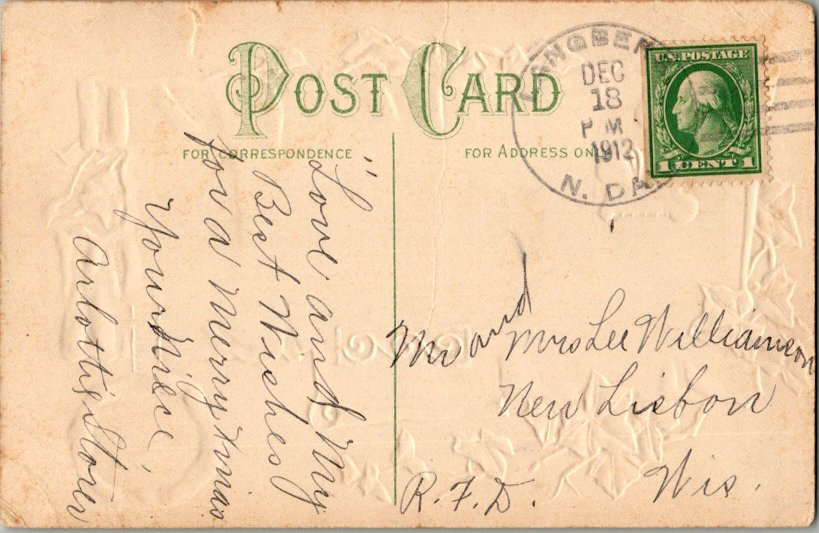 POST CARD
FOR CORRESPONDENCE
FOR ADDRESS ON
DEC
18
P M
1912
N. DAK
U.S. POSTAGE
1 CENT 1
"Love and My
Best Wishes
for a Merry Xmas
Your Niece,
Stover
Mr and Mrs Lee Williamson
New Lisbon
Wis.
R.F.D.